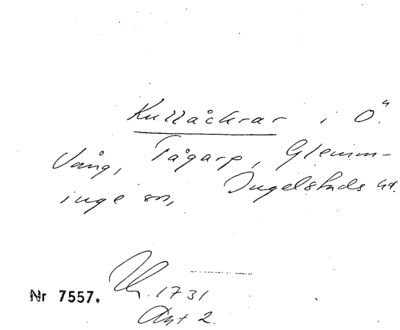 Kullåkrar i Ö.
Vång, Tågarp, Glemm-
inge sn, Ingelstads hd.
1731
Nr 7557.
Akt 2.